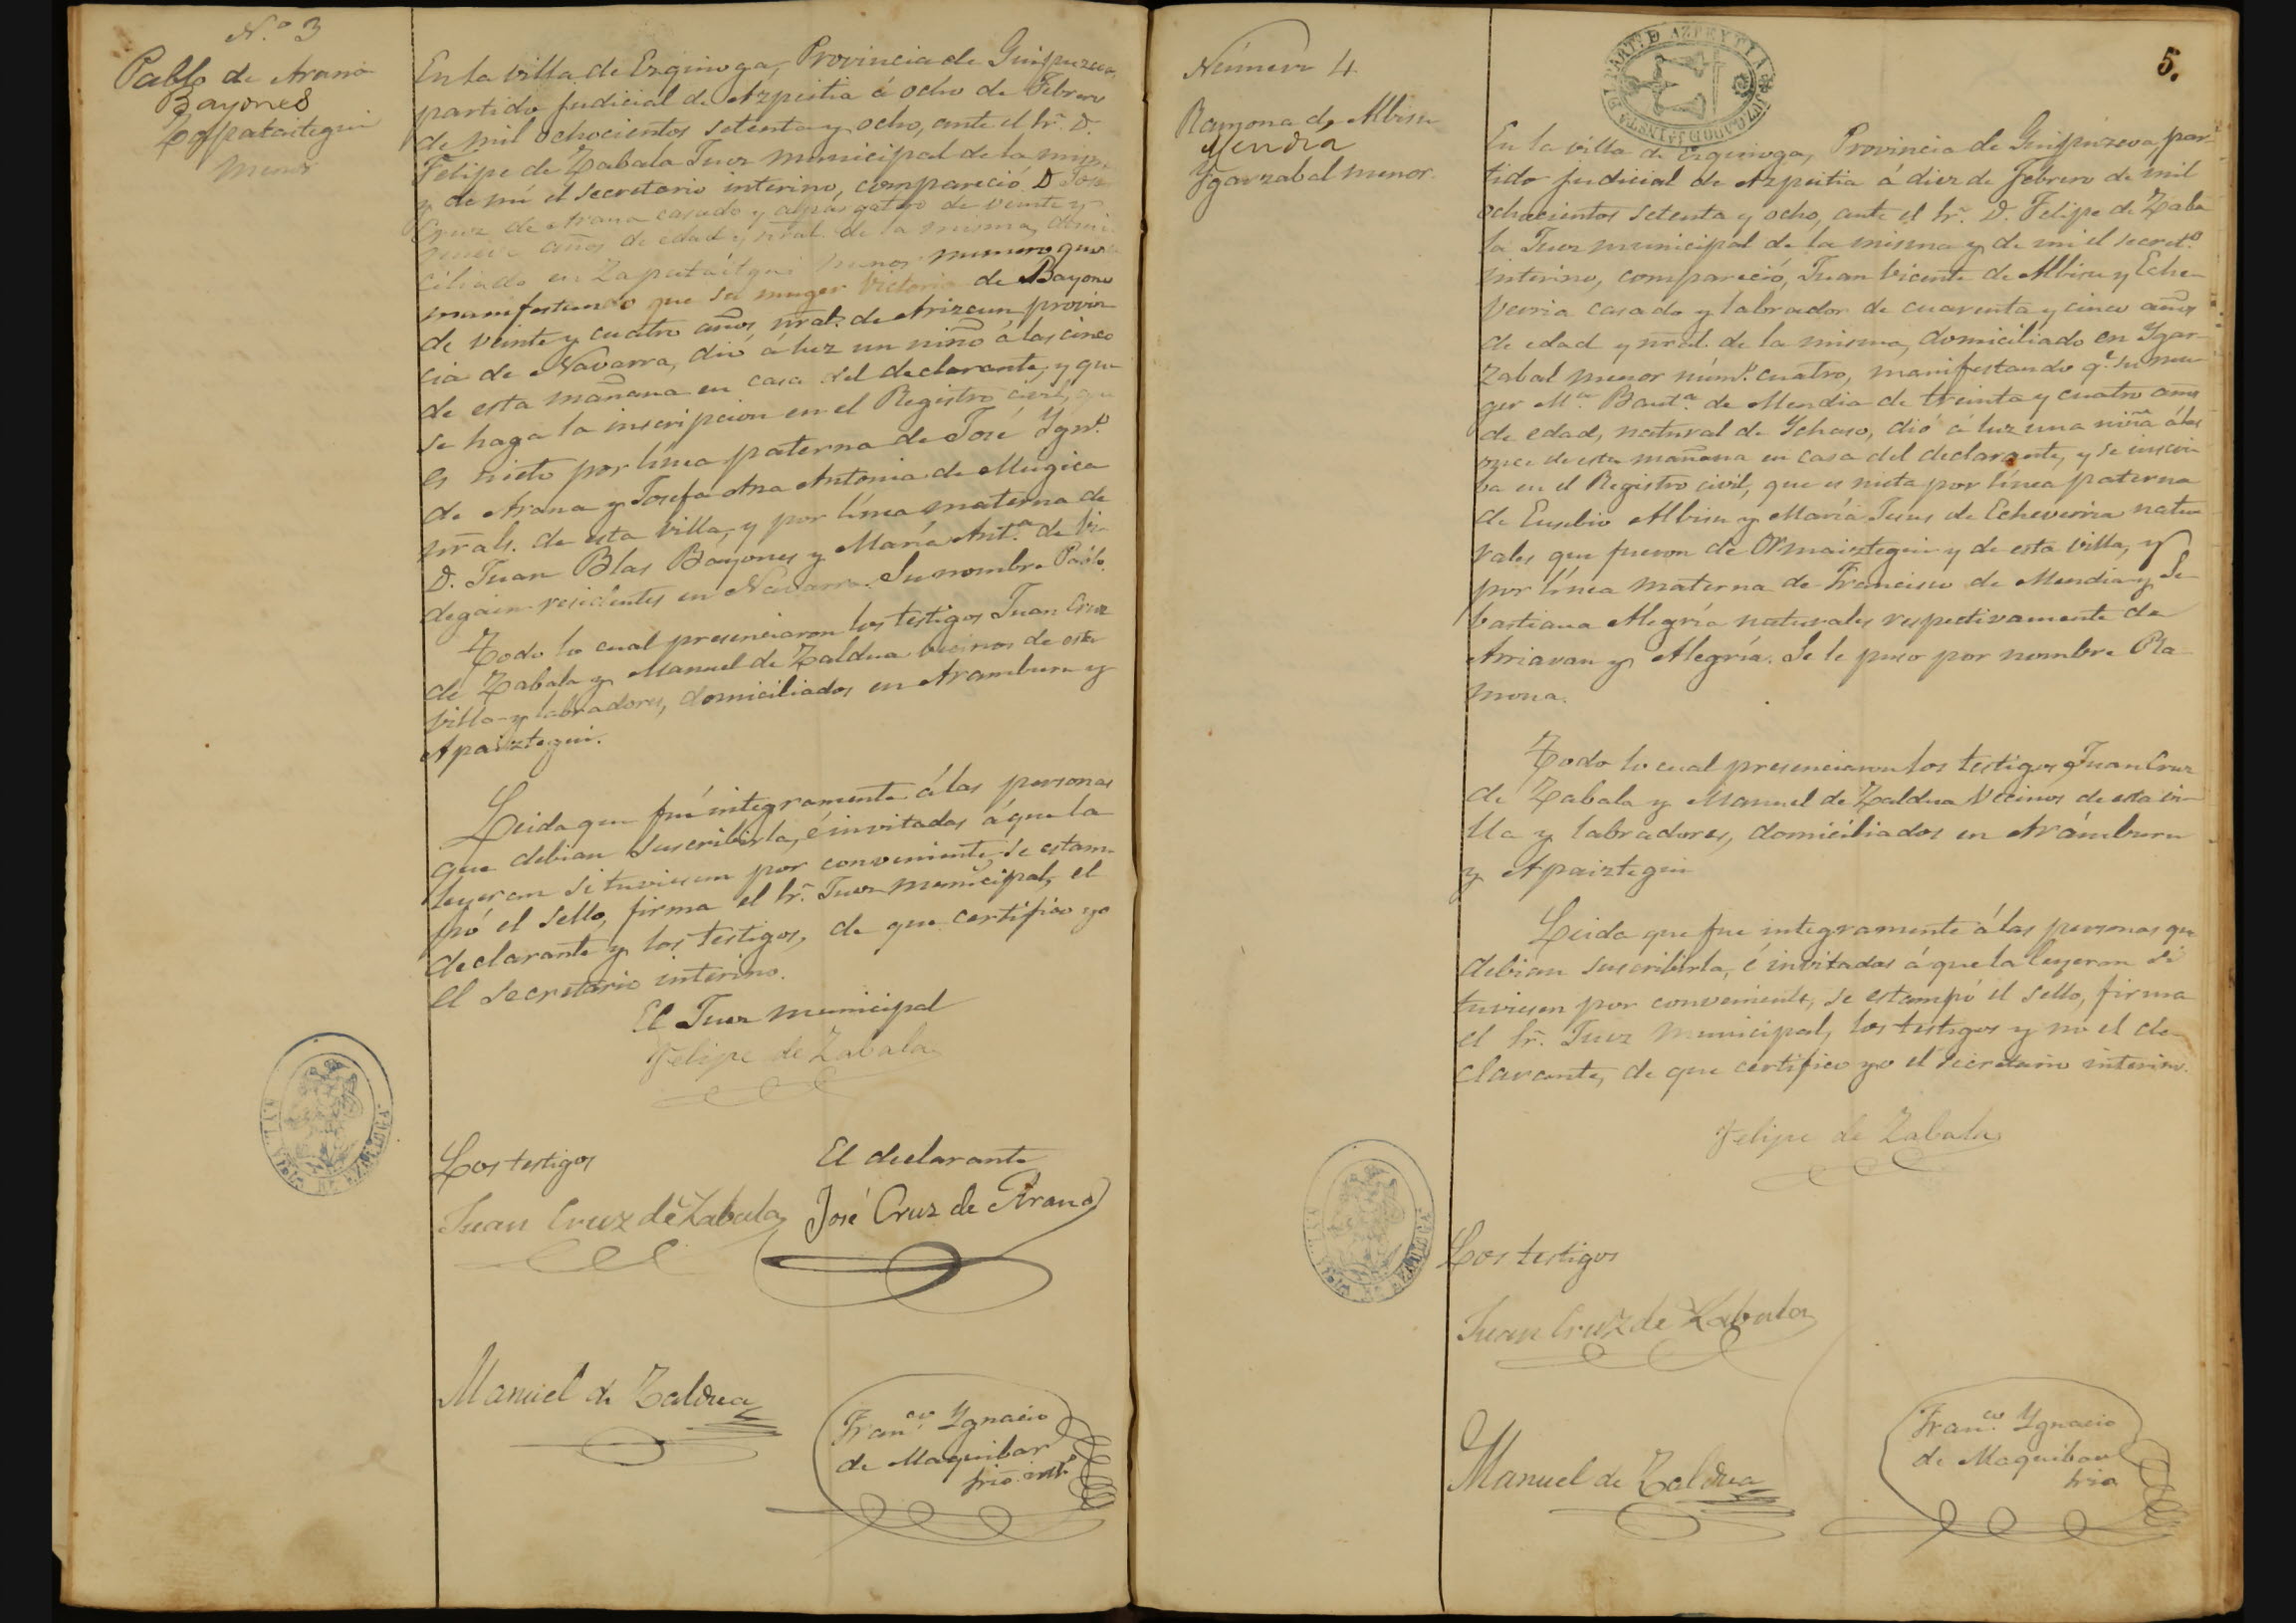 N.º 3
Pablo de Arana
Bayones
Zapataitegui
menor
En la villa de Ezquioga, Provincia de Guipuzcoa,
partido Judicial de Azpeitia á ocho de Febrero
de mil ochocientos setenta y ocho, ante el Sr. D.
Felipe de Zabala Juez municipal de la mism
y de mí el Secretario interino, compareció D José
Cruz de Arana casado y alpargatero de veinte y
nueve años de edad y nral. de la misma, domi-
ciliado en Zapataitegui menor numero
manifestando que su muger Victoria de Bayones
de veinte y cuatro años, nral. de Arizcun, provin
cia de Navarra, dió á luz un niño á las cinco
de esta mañana en casa del declarante, y que
se haga la inscripcion en el Registro civil, que
es nieto por línea paterna de José Ygn.º
de Arana y Josefa Ana Antonia de Mugica
nrals. de esta villa, y por línea materna de
D. Juan Blas Bayones y María Ant.ª de Vi-
degain residentes en Navarra. Su nombre Pablo.
Todo lo cual presenciaron los testigos Juan Cruz
de Zabala y Manuel de Zaldua vecinos de esta
villa y labradores, domiciliados en Aramburu y
Apaiztegui.
Leida que fué integramente á las personas
que debian suscribirla, é invitadas á que la
leyeran si tuviesen por conveniente, se estam-
pó el sello, firma el Sr. Juez municipal, el
declarante y los testigos, de que certifico yo
el Secretario interino.
El Juez municipal
Felipe de Zabala
Los testigos
El declarante
Juan Cruz de Zabala
José Cruz de Arana
Manuel de Zaldua
Fran.co Ygnacio
de Maquibar
Srio. int.º
Número 4
Ramona de Albisu
Mendia
Ygarzabal menor.
5.
PART. D AZPEYTIA
En la villa de Ezquioga, Provincia de Guipuzcoa, par-
tido judicial de Azpeitia á diez de Febrero de mil
ochocientos setenta y ocho, ante el Sr. D. Felipe de Zaba
la Juez municipal de la misma y de mi el secret.º
interino, compareció, Juan Vicente de Albisu y Eche-
verria casado y labrador de cuarenta y cinco años
de edad y nral. de la misma, domiciliado en Ygar-
zabal menor núm.º cuatro, manifestando q.e su mu-
ger M.ª Baut.ª de Mendia de treinta y cuatro años
de edad, natural de Ychaso, dió á luz una niña á las
once de esta mañana en casa del declarante, y se inscri-
ba en el Registro civil, que es nieta por línea paterna
de Eusebio Albisu y María Jesus de Echeverria natu-
rales que fueron de Ormaiztegui y de esta villa, y
por línea materna de Francisco de Mendia y Se-
bastiana Alegría naturales respectivamente de
Arriaran y Alegría. Se le puso por nombre Ra-
mona.
Todo lo cual presenciaron los testigos Juan Cruz
de Zabala y Manuel de Zaldua vecinos de esta vi-
lla y labradores, domiciliados en Arámburu
y Apaiztegui
Leida que fue integramente á las personas que
debian suscribirla, é invitadas á que la leyeran si
tuviesen por conveniente, se estampó el sello, firma
el Sr. Juez municipal, los testigos y no el de-
clarante, de que certifico yo el Secretario interino.
Felipe de Zabala
Los testigos
Juan Cruz de Zabala
Manuel de Zaldua
Fran.co Ygnacio
de Maquibar
Srio